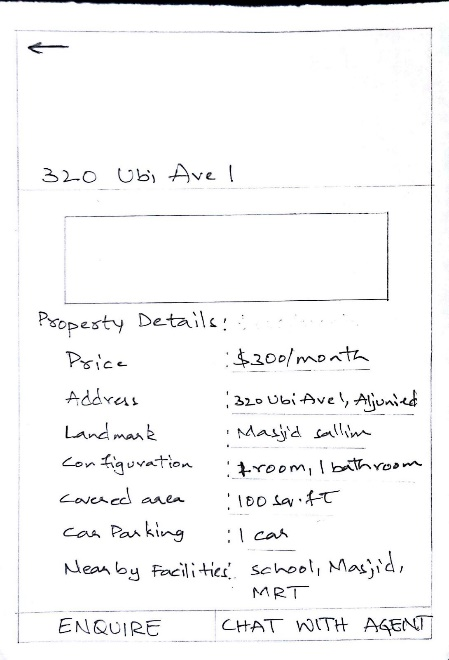 320 Ubi Ave 1
Property Details:
Price : $300/month
Address : 320 Ubi Ave 1, Aljunied
Landmark : Masjid sallim
Configuration : 1 room, 1 bathroom
Covered area : 100 sq.ft
Car Parking : 1 car
Nearby Facilities: school, Masjid,
MRT
ENQUIRE CHAT WITH AGENT